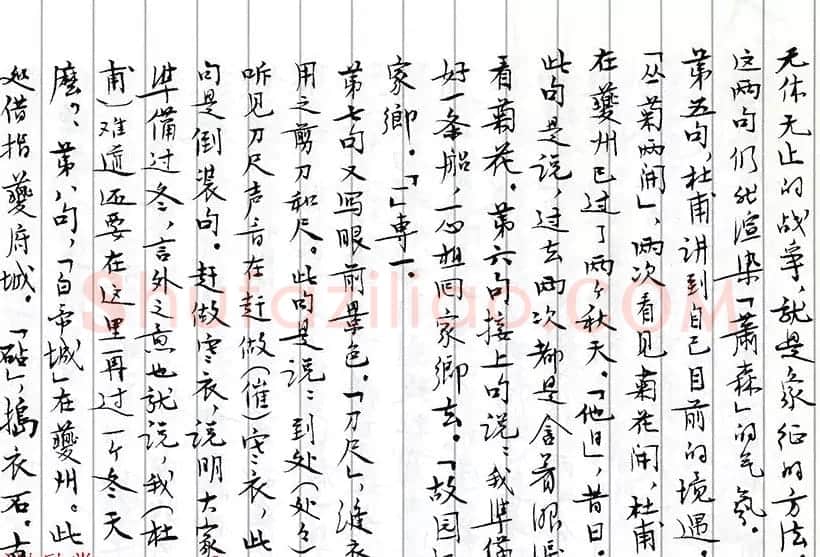 无休无止的战争,就是象征的方法。
这两句仍然渲染「萧森」的气氛。
第五句,杜甫讲到自己目前的境遇。
「丛菊两開」,两次看见菊花開,杜甫
在夔州已过了两个秋天。「他日」,昔日。
此句是说,过去两次都是含着眼
看菊花。第六句接上句说:我準備
好一条船,一心想回家鄉去。「故园
家鄉。「一」專一。
第七句又写眼前景色。「刀尺」,缝衣
用之剪刀和尺。此句是说:到处(处处)
听见刀尺声音在赶做(催)寒衣,此
句是倒装句。赶做寒衣,说明大家
準備过冬,言外之意也就说,我(杜
甫)难道还要在这里再过一个冬天
麽?第八句,「白帝城」在夔州。此
处借指夔府城。「砧」,搗衣石。
Shufaziliao.COM